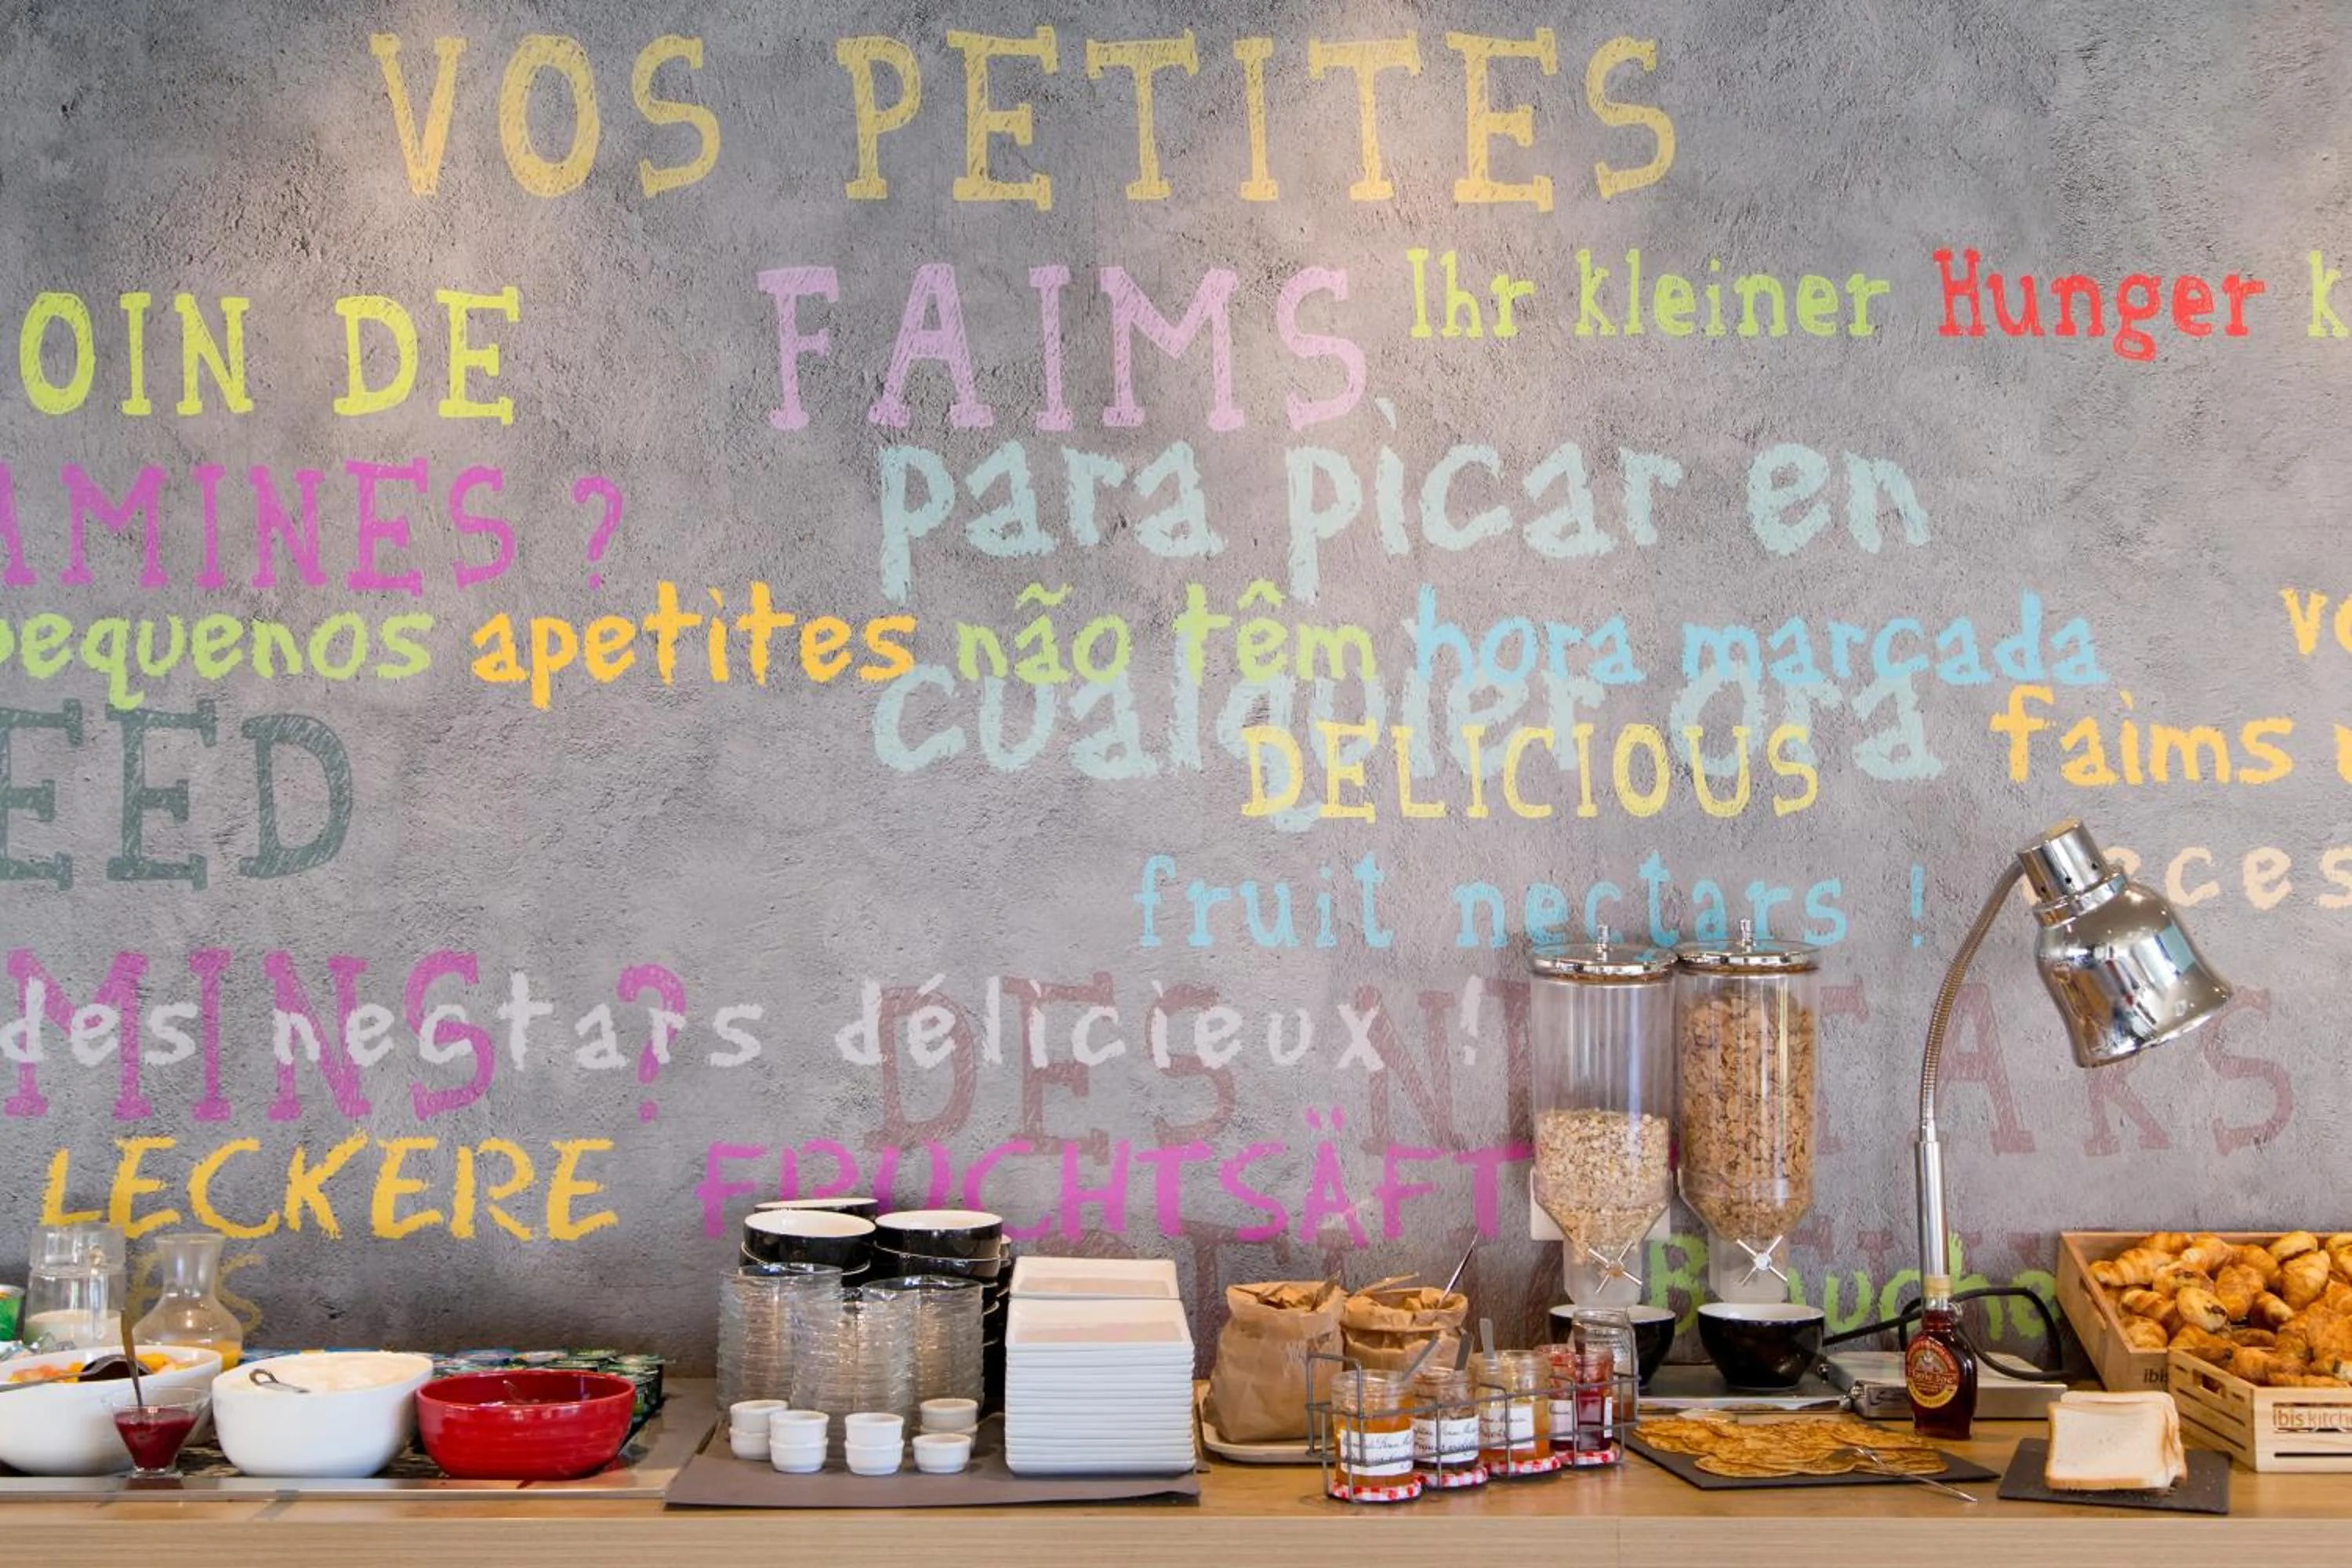 VOS PETITES
FAIMS
Ihr kleiner Hunger k
OIN DE
AMINES ?
para picar en
pequenos apetites não têm hora marcada
cualquier ora
EED
DELICIOUS
faims
fruit nectars !
eces
MINS ?
des nectars délicieux !
DES NECTARS
LECKERE FRUCHTSÄFT
ibis
ibis kitch